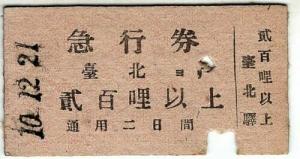 急行券
臺北ヨリ
貳百哩以上
通用二日間
貳百哩以上
臺北驛
10.12.21